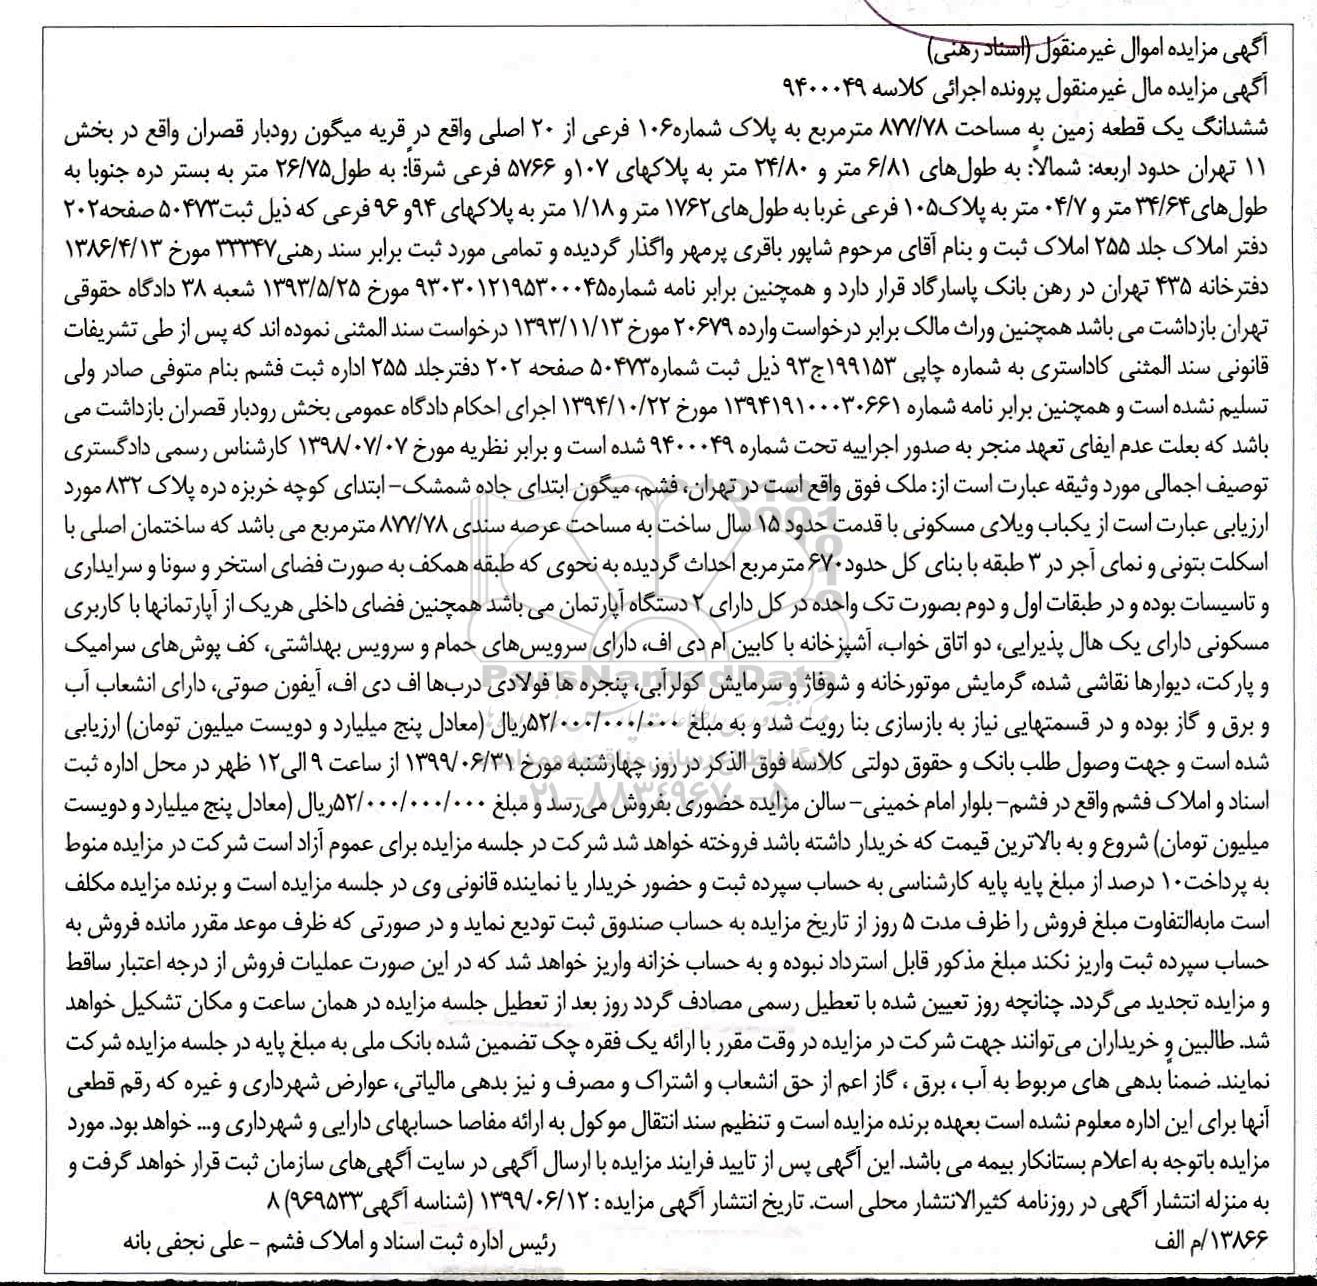 آگهی مزایده اموال غیرمنقول (اسناد رهنی)
آگهی مزایده مال غیرمنقول پرونده اجرائی کلاسه ۹۴۰۰۰۴۹
ششدانگ یک قطعه زمین به مساحت ۸۷۷/۷۸ مترمربع به پلاک شماره۱۰۶ فرعی از ۲۰ اصلی واقع در قریه میگون رودبار قصران واقع در بخش
۱۱ تهران حدود اربعه: شمالاً: به طول‌های ۶/۸۱ متر و ۲۴/۸۰ متر به پلاکهای ۱۰۷و ۵۷۶۶ فرعی شرقاً: به طول۲۶/۷۵ متر به بستر دره جنوبا به
طول‌های۳۴/۶۴ متر و ۰۴/۷ متر به پلاک۱۰۵ فرعی غربا به طول‌های۱۷۶۲ متر و ۱/۱۸ متر به پلاکهای ۹۴و ۹۶ فرعی که ذیل ثبت۵۰۴۷۳ صفحه۲۰۲
دفتر املاک جلد ۲۵۵ املاک ثبت و بنام آقای مرحوم شاپور باقری پرمهر واگذار گردیده و تمامی مورد ثبت برابر سند رهنی۳۳۳۴۷ مورخ ۱۳۸۶/۴/۱۳
دفترخانه ۴۳۵ تهران در رهن بانک پاسارگاد قرار دارد و همچنین برابر نامه شماره۹۳۰۳۰۱۲۱۹۵۳۰۰۰۴۵ مورخ ۱۳۹۳/۵/۲۵ شعبه ۳۸ دادگاه حقوقی
تهران بازداشت می باشد همچنین وراث مالک برابر درخواست وارده ۲۰۶۷۹ مورخ ۱۳۹۳/۱۱/۱۳ درخواست سند المثنی نموده اند که پس از طی تشریفات
قانونی سند المثنی کاداستری به شماره چاپی ۱۹۹۱۵۳ج۹۳ ذیل ثبت شماره۵۰۴۷۳ صفحه ۲۰۲ دفترجلد ۲۵۵ اداره ثبت فشم بنام متوفی صادر ولی
تسلیم نشده است و همچنین برابر نامه شماره ۱۳۹۴۱۹۱۰۰۰۳۰۶۶۱ مورخ ۱۳۹۴/۱۰/۲۲ اجرای احکام دادگاه عمومی بخش رودبار قصران بازداشت می
باشد که بعلت عدم ایفای تعهد منجر به صدور اجراییه تحت شماره ۹۴۰۰۰۴۹ شده است و برابر نظریه مورخ ۱۳۹۸/۰۷/۰۷ کارشناس رسمی دادگستری
توصیف اجمالی مورد وثیقه عبارت است از: ملک فوق واقع است در تهران، فشم، میگون ابتدای جاده شمشک- ابتدای کوچه خربزه دره پلاک ۸۳۲ مورد
ارزیابی عبارت است از یکباب ویلای مسکونی با قدمت حدود ۱۵ سال ساخت به مساحت عرصه سندی ۸۷۷/۷۸ مترمربع می باشد که ساختمان اصلی با
اسکلت بتونی و نمای آجر در ۳ طبقه با بنای کل حدود۶۷۰ مترمربع احداث گردیده به نحوی که طبقه همکف به صورت فضای استخر و سونا و سرایداری
و تاسیسات بوده و در طبقات اول و دوم بصورت تک واحده در کل دارای ۲ دستگاه آپارتمان می باشد همچنین فضای داخلی هریک از آپارتمانها با کاربری
مسکونی دارای یک هال پذیرایی، دو اتاق خواب، آشپزخانه با کابین ام دی اف، دارای سرویس‌های حمام و سرویس بهداشتی، کف پوش‌های سرامیک
و پارکت، دیوارها نقاشی شده، گرمایش موتورخانه و شوفاژ و سرمایش کولرآبی، پنجره ها فولادی درب‌ها اف دی اف، آیفون صوتی، دارای انشعاب آب
و برق و گاز بوده و در قسمتهایی نیاز به بازسازی بنا رویت شد و به مبلغ ۵۲/۰۰۰/۰۰۰/۰۰۰ریال (معادل پنج میلیارد و دویست میلیون تومان) ارزیابی
شده است و جهت وصول طلب بانک و حقوق دولتی کلاسه فوق الذکر در روز چهارشنبه مورخ ۱۳۹۹/۰۶/۳۱ از ساعت ۹ الی۱۲ ظهر در محل اداره ثبت
اسناد و املاک فشم واقع در فشم- بلوار امام خمینی- سالن مزایده حضوری بفروش می‌رسد و مبلغ ۵۲/۰۰۰/۰۰۰/۰۰۰ریال (معادل پنج میلیارد و دویست
میلیون تومان) شروع و به بالاترین قیمت که خریدار داشته باشد فروخته خواهد شد شرکت در جلسه مزایده برای عموم آزاد است شرکت در مزایده منوط
به پرداخت۱۰ درصد از مبلغ پایه پایه کارشناسی به حساب سپرده ثبت و حضور خریدار یا نماینده قانونی وی در جلسه مزایده است و برنده مزایده مکلف
است مابه‌التفاوت مبلغ فروش را ظرف مدت ۵ روز از تاریخ مزایده به حساب صندوق ثبت تودیع نماید و در صورتی که ظرف موعد مقرر مانده فروش به
حساب سپرده ثبت واریز نکند مبلغ مذکور قابل استرداد نبوده و به حساب خزانه واریز خواهد شد که در این صورت عملیات فروش از درجه اعتبار ساقط
و مزایده تجدید می‌گردد. چنانچه روز تعیین شده با تعطیل رسمی مصادف گردد روز بعد از تعطیل جلسه مزایده در همان ساعت و مکان تشکیل خواهد
شد. طالبین و خریداران می‌توانند جهت شرکت در مزایده در وقت مقرر با ارائه یک فقره چک تضمین شده بانک ملی به مبلغ پایه در جلسه مزایده شرکت
نمایند. ضمناً بدهی های مربوط به آب ، برق ، گاز اعم از حق انشعاب و اشتراک و مصرف و نیز بدهی مالیاتی، عوارض شهرداری و غیره که رقم قطعی
آنها برای این اداره معلوم نشده است بعهده برنده مزایده است و تنظیم سند انتقال موکول به ارائه مفاصا حسابهای دارایی و شهرداری و... خواهد بود. مورد
مزایده باتوجه به اعلام بستانکار بیمه می باشد. این آگهی پس از تایید فرایند مزایده با ارسال آگهی در سایت آگهی‌های سازمان ثبت قرار خواهد گرفت و
به منزله انتشار آگهی در روزنامه کثیرالانتشار محلی است. تاریخ انتشار آگهی مزایده : ۱۳۹۹/۰۶/۱۲ (شناسه آگهی۹۶۹۵۳۳) ۸
۱۳۸۶۶/م الف
رئیس اداره ثبت اسناد و املاک فشم - علی نجفی بانه
ParsNamadData
۰۲۱-۸۸۳۴۹۶۷۰-۵